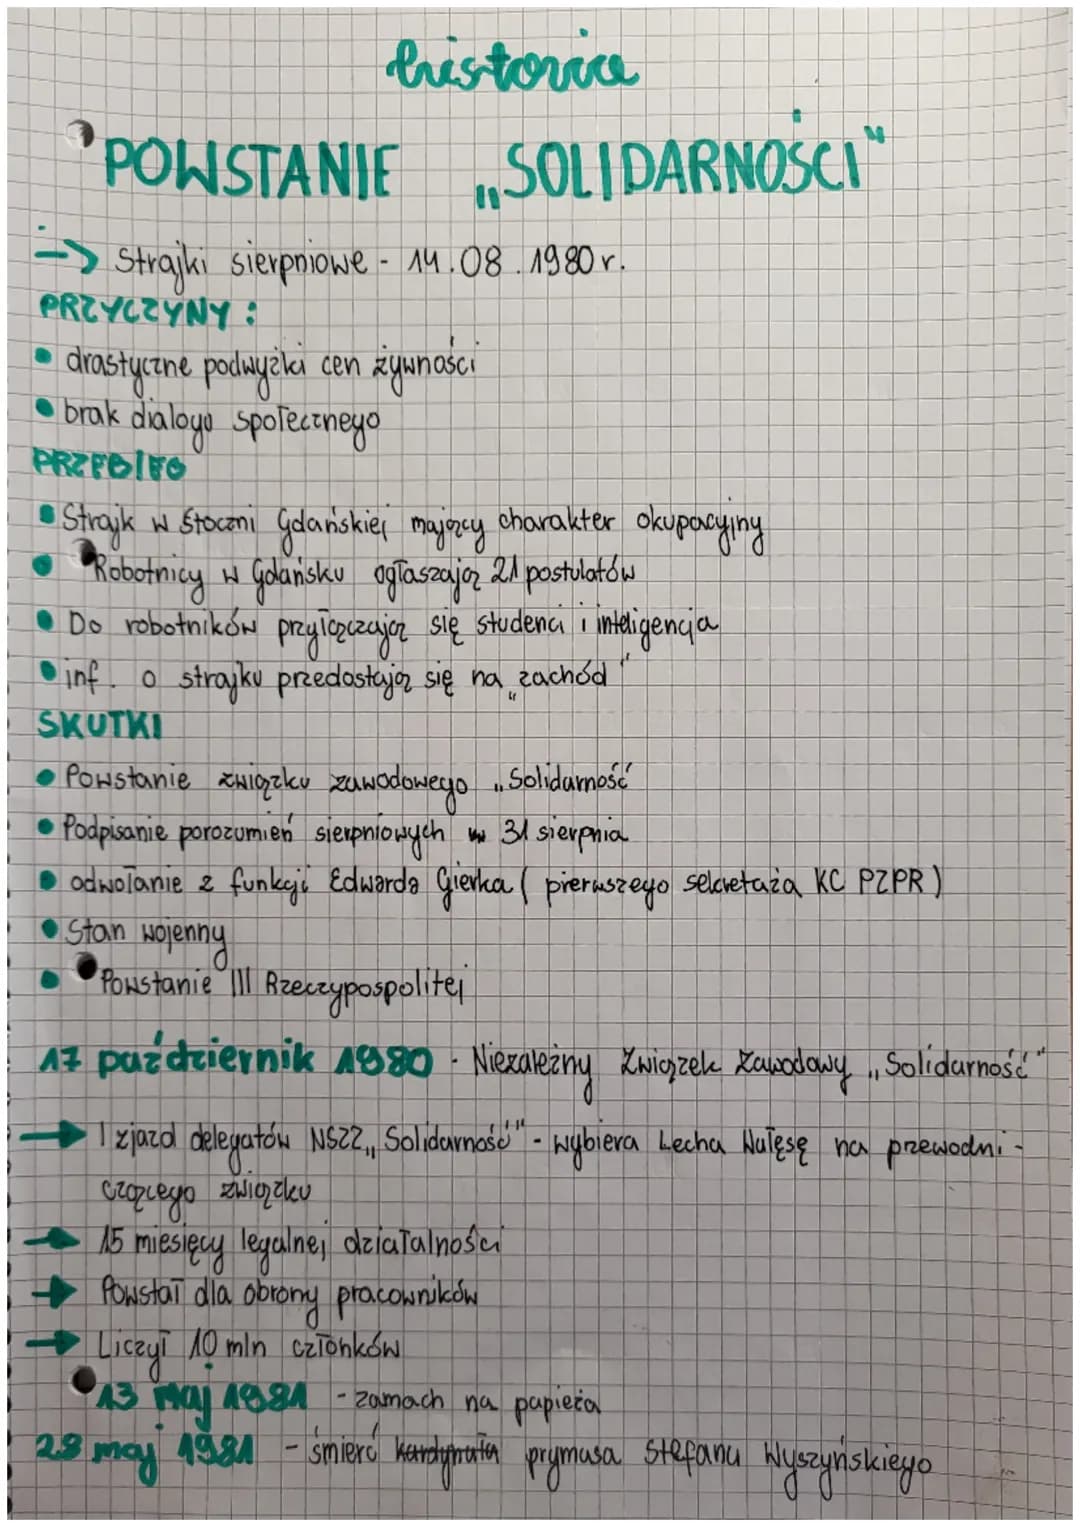 historia
POWSTANIE „SOLIDARNOŚCI"
-> Strajki sierpniowe - 14.08.1980 r.
PRZYCZYNY:
• drastyczne podwyżki cen żywności
• brak dialogu społecznego
PRZEBIEG
• Strajk w Stoczni Gdańskiej mający charakter okupacyjny
• Robotnicy w Gdańsku ogłaszają 21 postulatów
• Do robotników przyłączają się studenci i inteligencja
• inf. o strajku przedostają się na „zachód"
SKUTKI
• Powstanie związku zawodowego „Solidarność
• Podpisanie porozumień sierpniowych 31 sierpnia
• odwołanie z funkcji Edwarda Gierka (pierwszego sekretaża KC PZPR)
• Stan wojenny
• Powstanie III Rzeczypospolitej
17 październik 1980 - Niezależny Związek Zawodowy „Solidarność"
→ I zjazd delegatów NSZZ „Solidarność" - wybiera Lecha Wałęsę na przewodni-
czącego związku
→ 15 miesięcy legalnej działalności
→ Powstał dla obrony pracowników
→ Liczył 10 mln członków
13 maj 1981 - zamach na papieża
28 maj 1981 - śmierć kardynała prymasa Stefana Wyszyńskiego